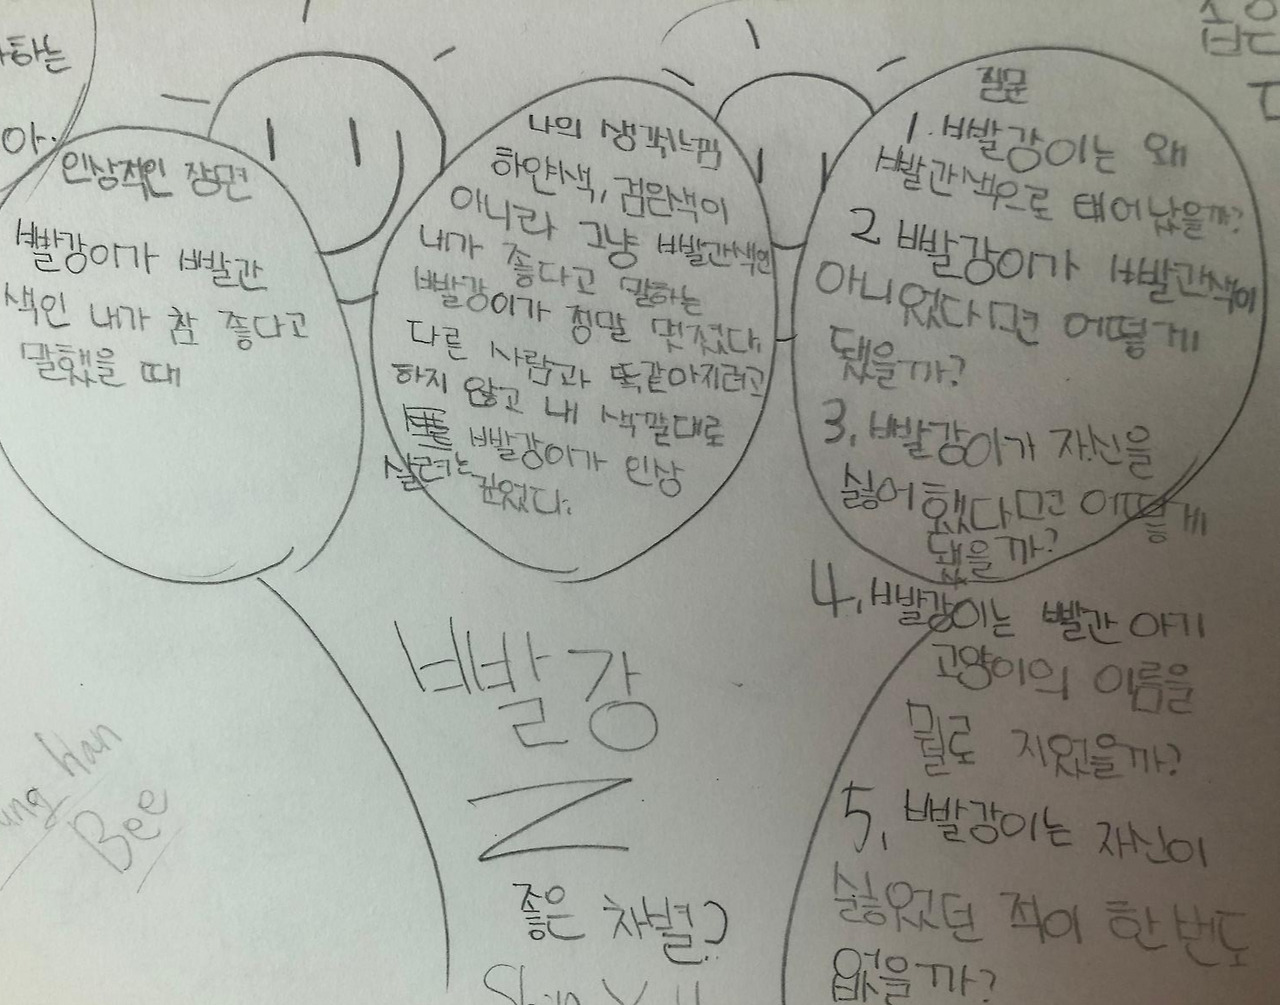 하는
아.
인상적인 장면
빨강이가 빨간
색인 내가 참 좋다고
말했을 때
나의 생각느낌
하얀색, 검은색이
아니라 그냥 빨간색인
내가 좋다고 말하는
빨강이가 정말 멋졌다.
다른 사람과 똑같아지려고
하지 않고 내 색깔대로
살려는 빨강이가 인상
깊었다.
질문
1. 빨강이는 왜
빨간색으로 태어났을까?
2 빨강이가 빨간색이
아니었다면 어떻게
됐을까?
3. 빨강이가 자신을
싫어했다면 어떻게
됐을까?
4. 빨강이는 빨간 아기
고양이의 이름을
뭘로 지었을까?
5. 빨강이는 자신이
싫었던 적이 한번도
없을까?
빨강
Z
좋은 차별?
Han
Bee